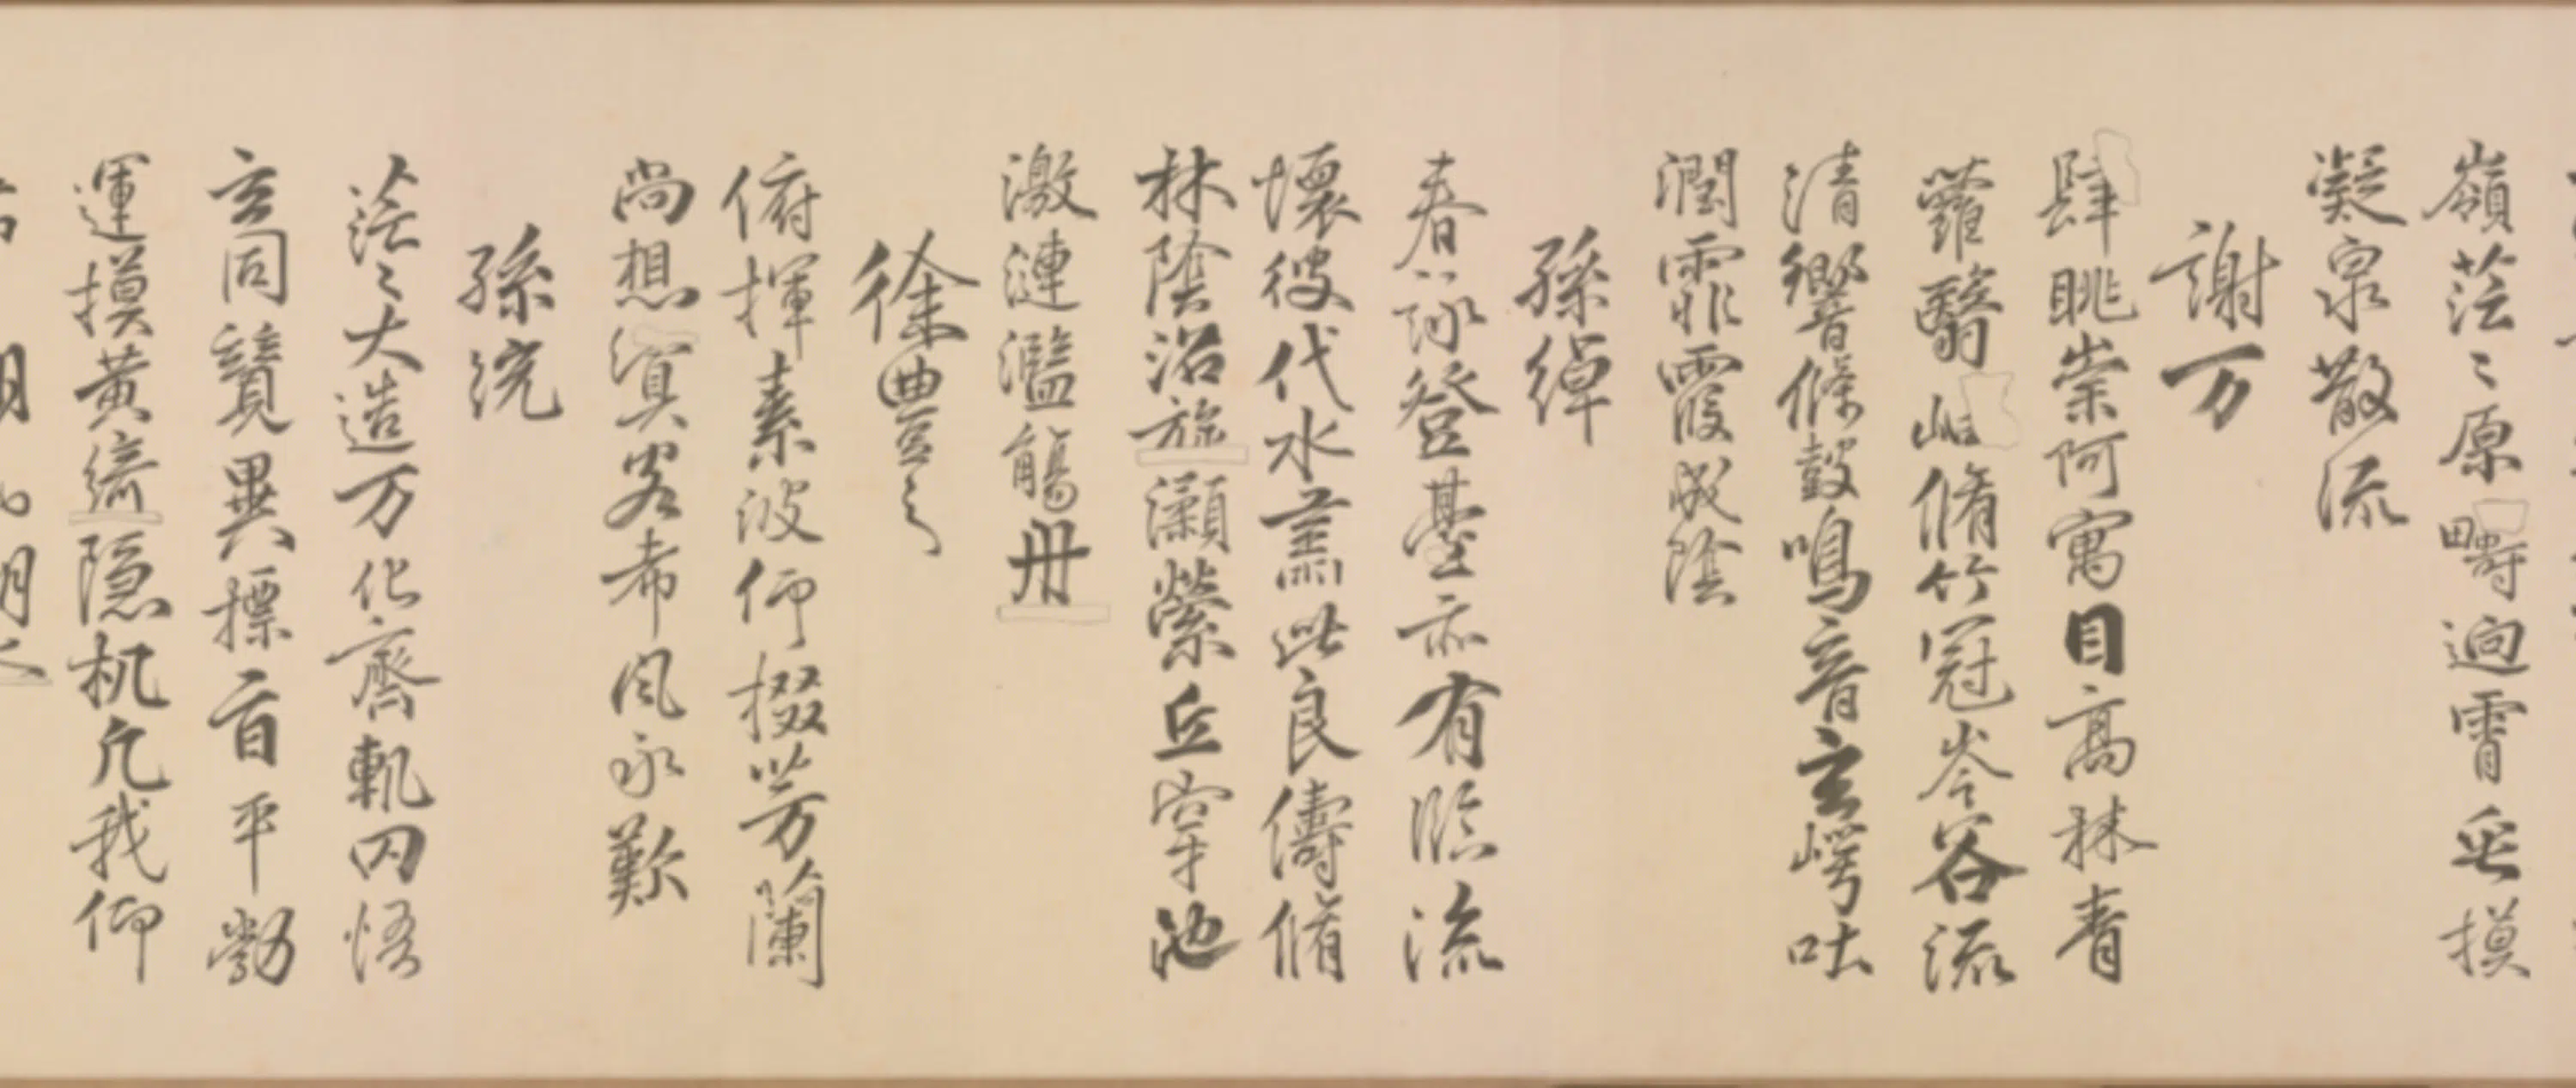 嶺茫〻原疇逈霄垂摸
凝泉散流
謝万
肆眺崇阿寓目高林青
蘿翳岫脩竹冠岑谷流
清響條鼓鳴音玄崿吐
潤霏霞成陰
孫綽
春詠登臺亦有臨流
懷彼代水肅此良儔脩
林陰沼旋瀨縈丘穿池
激漣濫觴舟
徐豐之
俯揮素波仰掇芳蘭
尚想冥客希風永歎
孫統
茫〻大造万化齊軌罔悟
玄同競異摽旨平勃
運摸黃綺隱机凢我仰